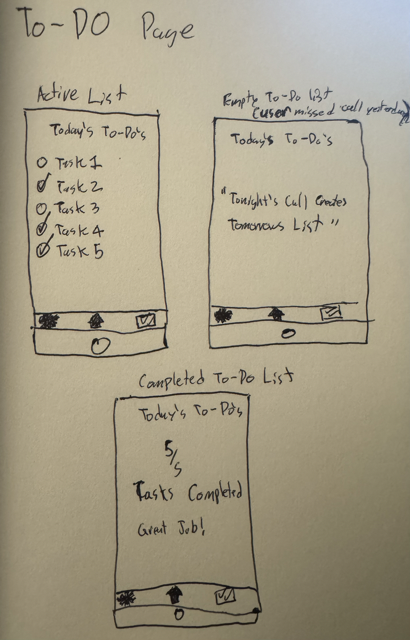 To-DO Page
Active List
Today's To-Do's
Task 1
Task 2
Task 3
Task 4
Task 5
Empty To-Do List
(user missed call yesterday)
Today's To-Do's
"Tonight's Call Creates
Tomorrows List"
Completed To-Do List
Today's To-Do's
5/5
Tasks Completed
Great Job!